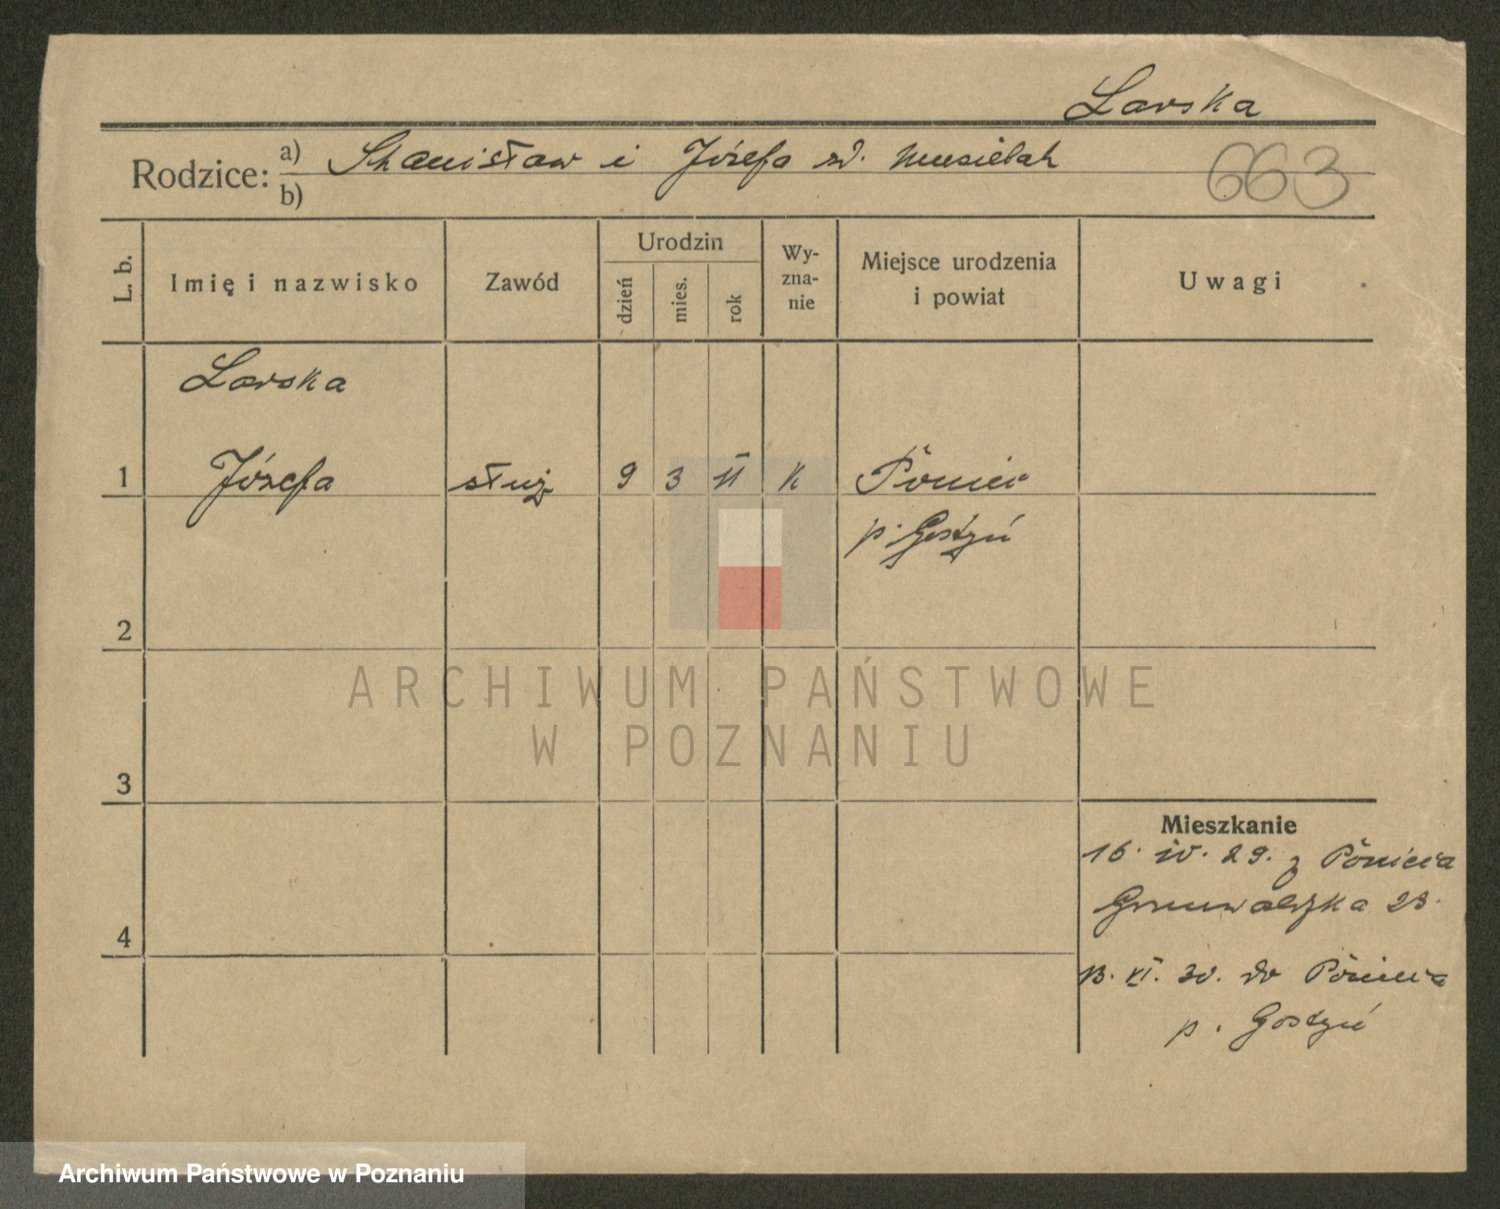 Larska
Rodzice: a) Stanisław i Józefa zd. Musielak
b)
663
L. b.
Imię i nazwisko
Zawód
Urodzin
dzień
mies.
rok
Wy-
zna-
nie
Miejsce urodzenia
i powiat
Uwagi
Larska
1 Józefa służ 9 3 11 k Poniec
p. Gostyń
2
3
4
Mieszkanie
16. IV. 29. z Poniecia
Grunwaldzka 23.
13. XI. 30. do Poniecia
p. Gostyń
ARCHIWUM PAŃSTWOWE
W POZNANIU
Archiwum Państwowe w Poznaniu